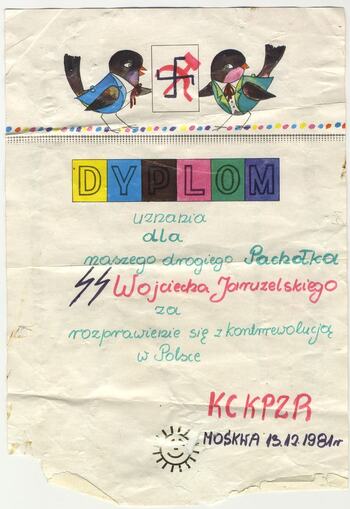 DYPLOM
uznania
dla
naszego drogiego Pachołka
SS Wojciecha Jaruzelskiego
za
rozprawienie się z kontrrewolucją
w Polsce
KCKPZR
MOSKWA 13.12.1981r